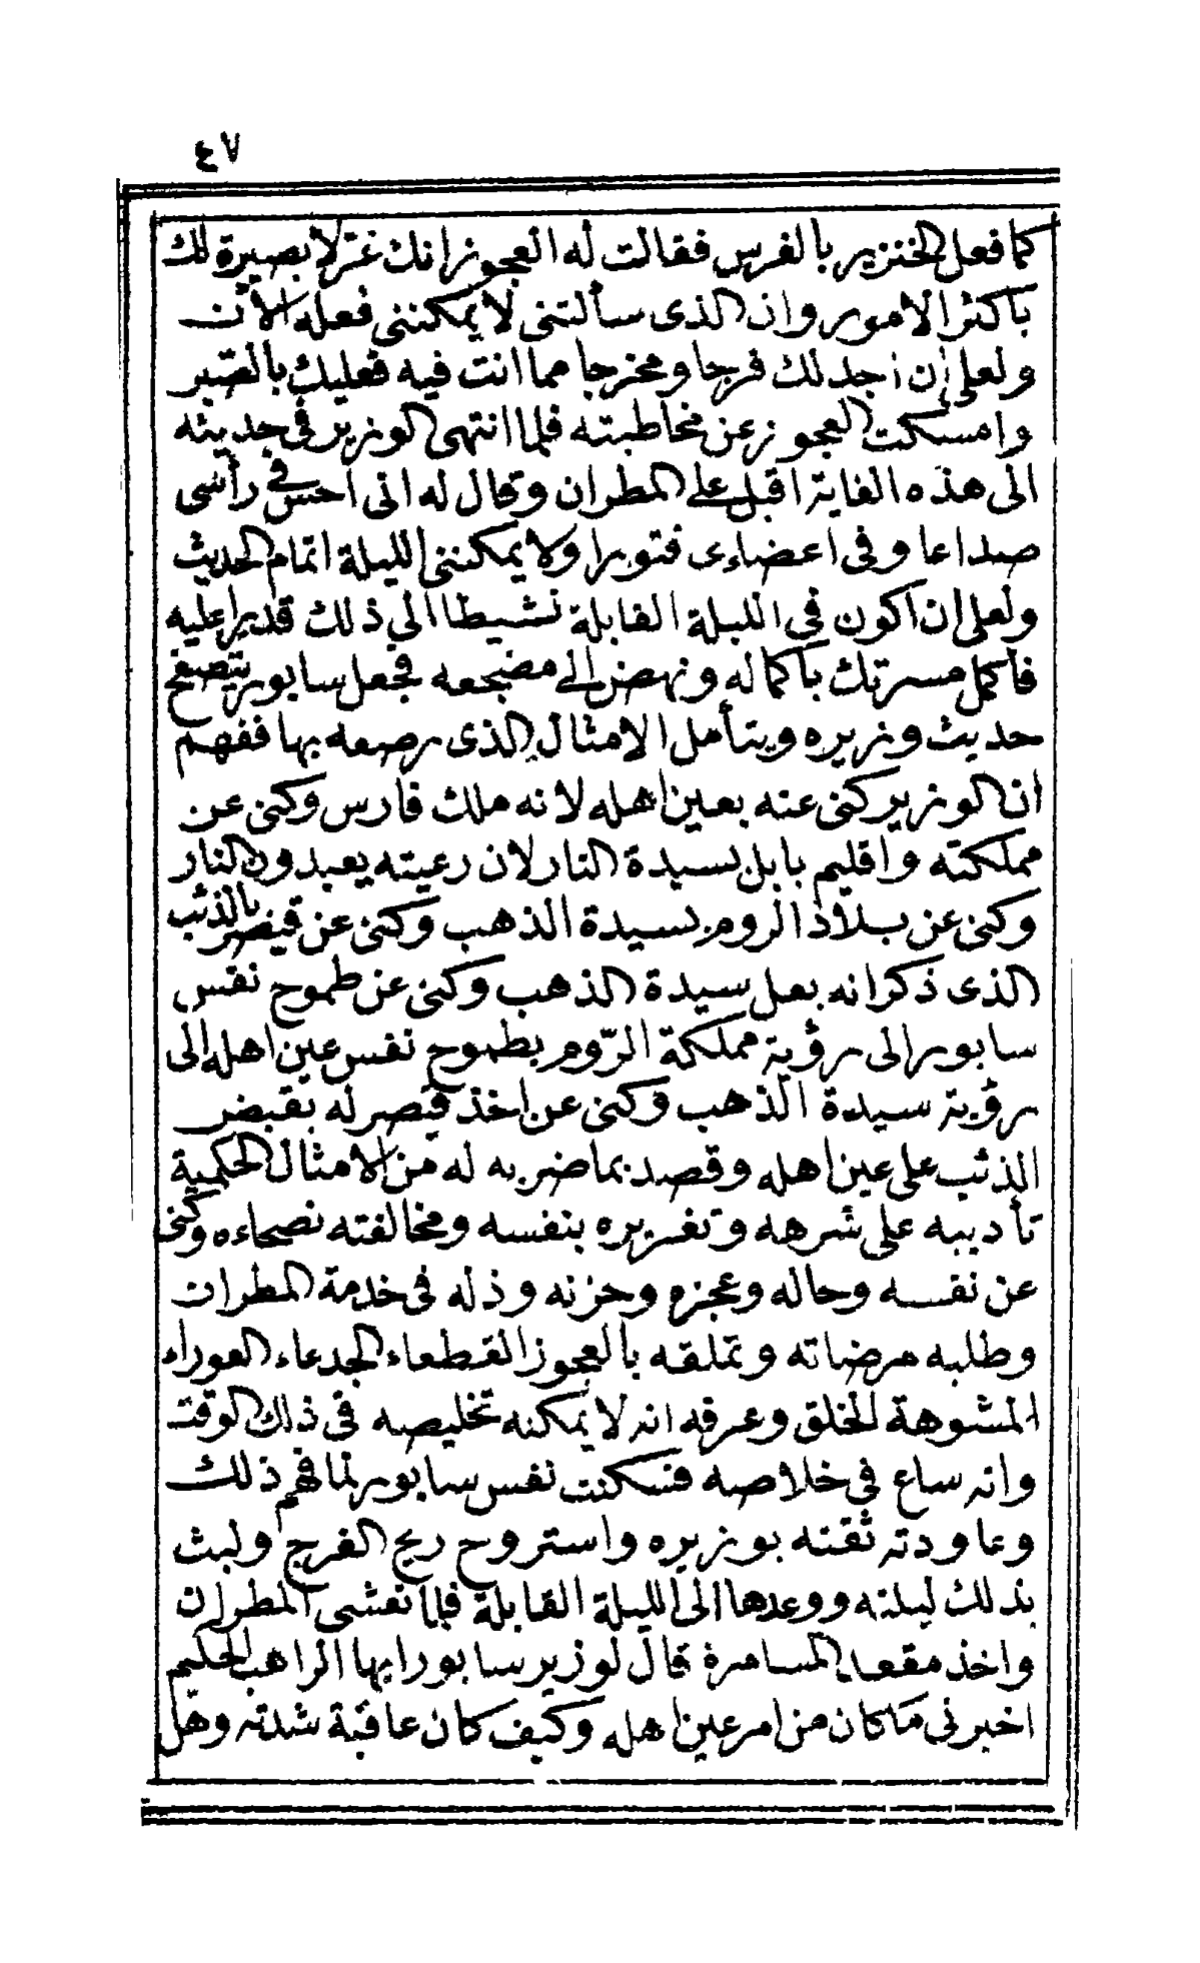 ٤٧
كما فعل الخنزير بالفرس فقالت له العجوز انك غر لا بصيرة لك
باكثر الامور وان الذى سألتنى لا يمكننى فعله الآن
ولعلى ان اجد لك فرجا ومخرجا مما انت فيه فعليك بالصّبر
وامسكت العجوز عن مخاطبته فلما انتهى الوزير فى حديثه
الى هذه الغاية اقبل على المطران وقال له انى احس فى رأسى
صداعا وفى اعضاءى فتورا ولا يمكننى الليلة اتمام الحديث
ولعلى ان اكون فى الليلة القابلة نشيطا الى ذلك قديرا عليه
فاكمل مسرتك باكماله ونهض الى مضجعه فجعل سابور يتصفح
حديث وزيره ويتأمل الامثال الذى رصعه بها ففهم
ان الوزير كنى عنه بعين اهله لانه ملك فارس وكنى عن
مملكته واقليم بابل بسيدة النار لان رعيته يعبدون النار
وكنى عن بلاد الروم بسيدة الذهب وكنى عن قيصر بالذئب
الذى ذكر انه بعل سيدة الذهب وكنى عن طموح نفس
سابور الى رؤية مملكة الرّوم بطموح نفس عين اهله الى
رؤية سيدة الذهب وكنى عن اخذ قيصر له بقبض
الذئب على عين اهله وقصد بما ضربه له من الامثال الحكمية
تأديبه على شرهه وتغريره بنفسه ومخالفته نصحاءه وكنى
عن نفسه وحاله وعجزه وحزنه وذله فى خدمة المطران
وطلبه مرضاته وتملقه بالعجوز القطعاء الجدعاء العوراء
المشوهة الخلق وعرفه انه لا يمكنه تخليصه فى ذلك الوقت
وانه ساع فى خلاصه فسكنت نفس سابور لما فهم ذلك
وعاودته ثقته بوزيره واستروح ريح الفرج ولبث
بذلك ليلته ووعدها الى الليلة القابلة فلما تعشى المطران
واخذ مقعد المسامرة قال لوزير سابور ايها الراهب الحكيم
اخبرنى ما كان من امر عين اهله وكيف كان عاقبة شدته وهل